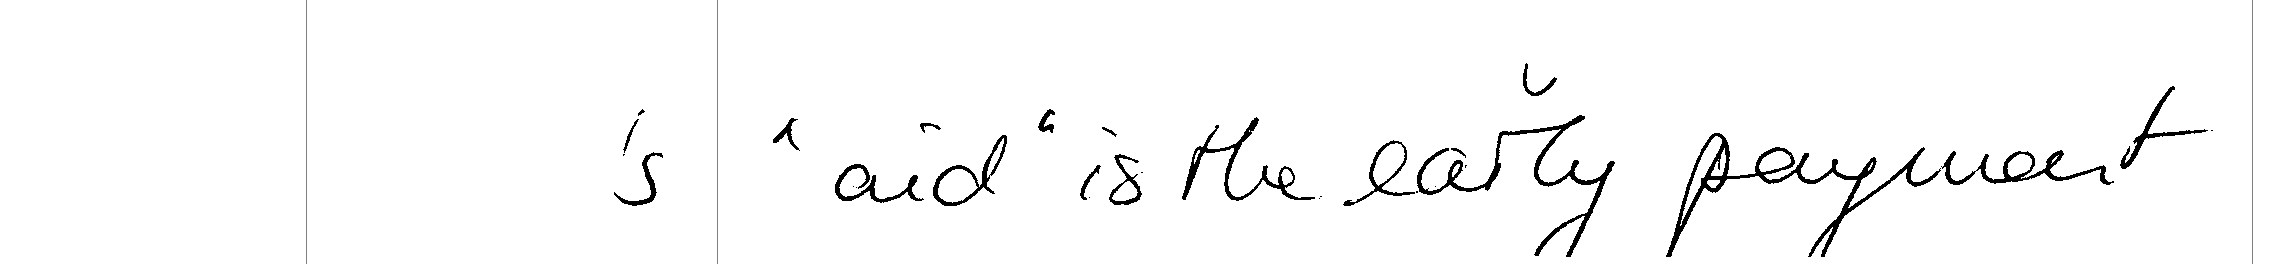 's "aid" is the early payment